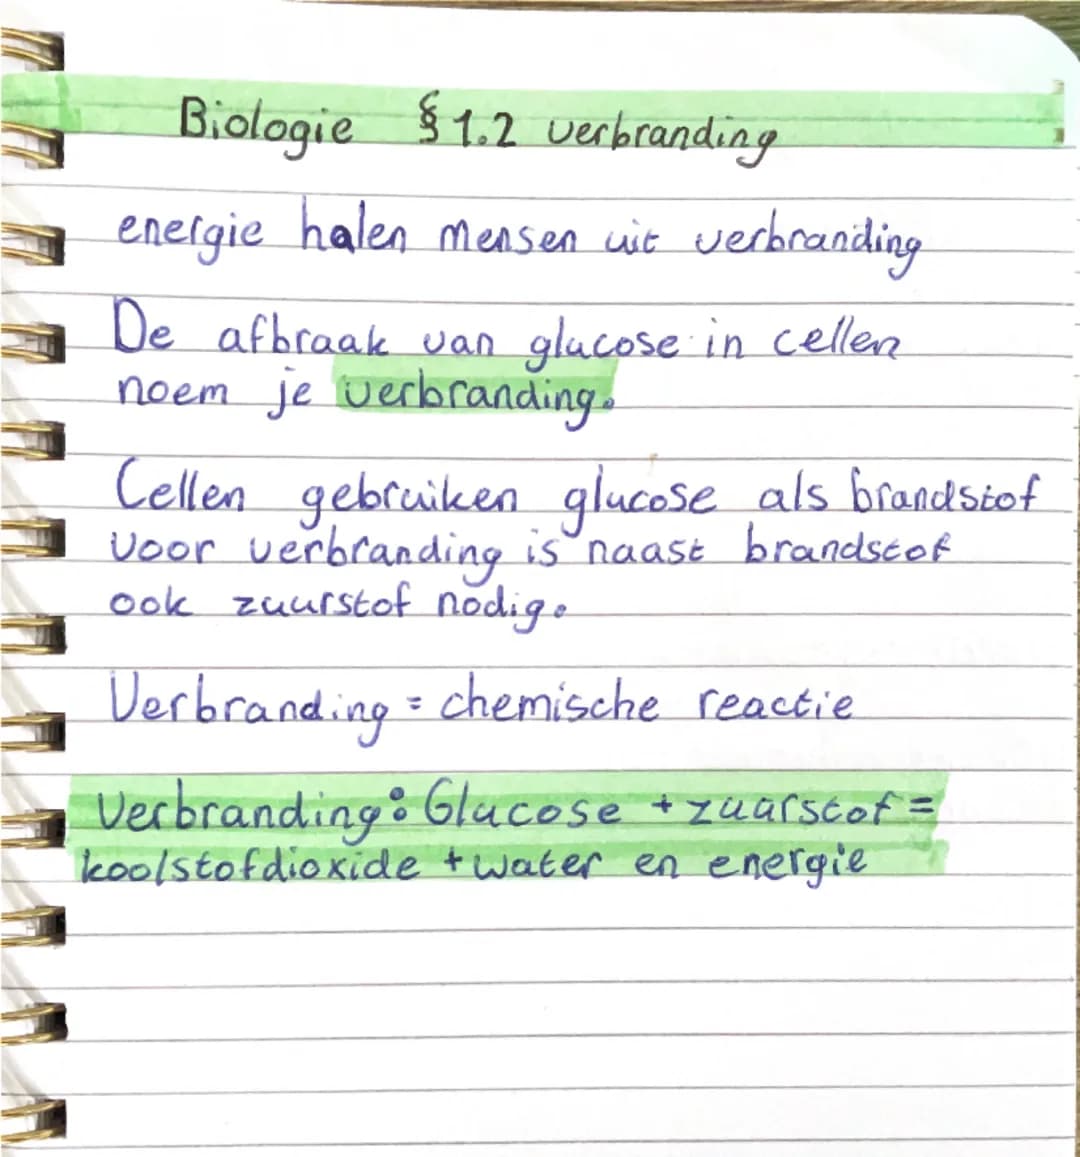 Biologie § 1.2 verbranding
energie halen mensen uit verbranding
De afbraak van glucose in cellen
noem je verbranding.
Cellen gebruiken glucose als brandstof
voor verbranding is naast brandstof
ook zuurstof nodig.
Verbranding = chemische reactie
Verbranding: Glucose + zuurstof =
koolstofdioxide + water en energie